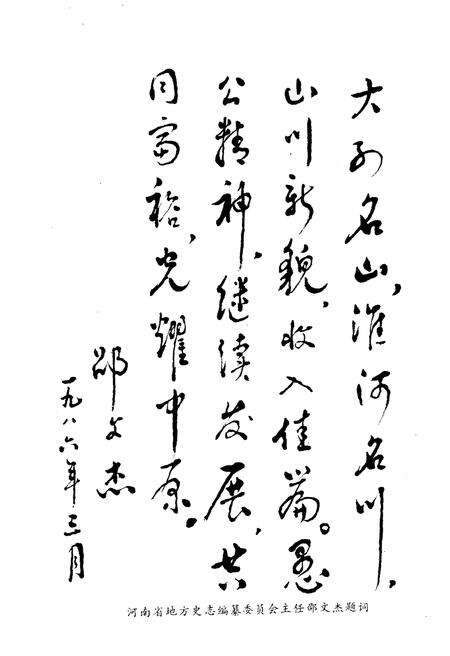 大别名山，淮河名川，
山川新貌，收入佳篇。愚
公精神，继续发展，共
同富裕，光耀中原。
邵文杰
一九八六年三月
河南省地方史志编纂委员会主任邵文杰题词